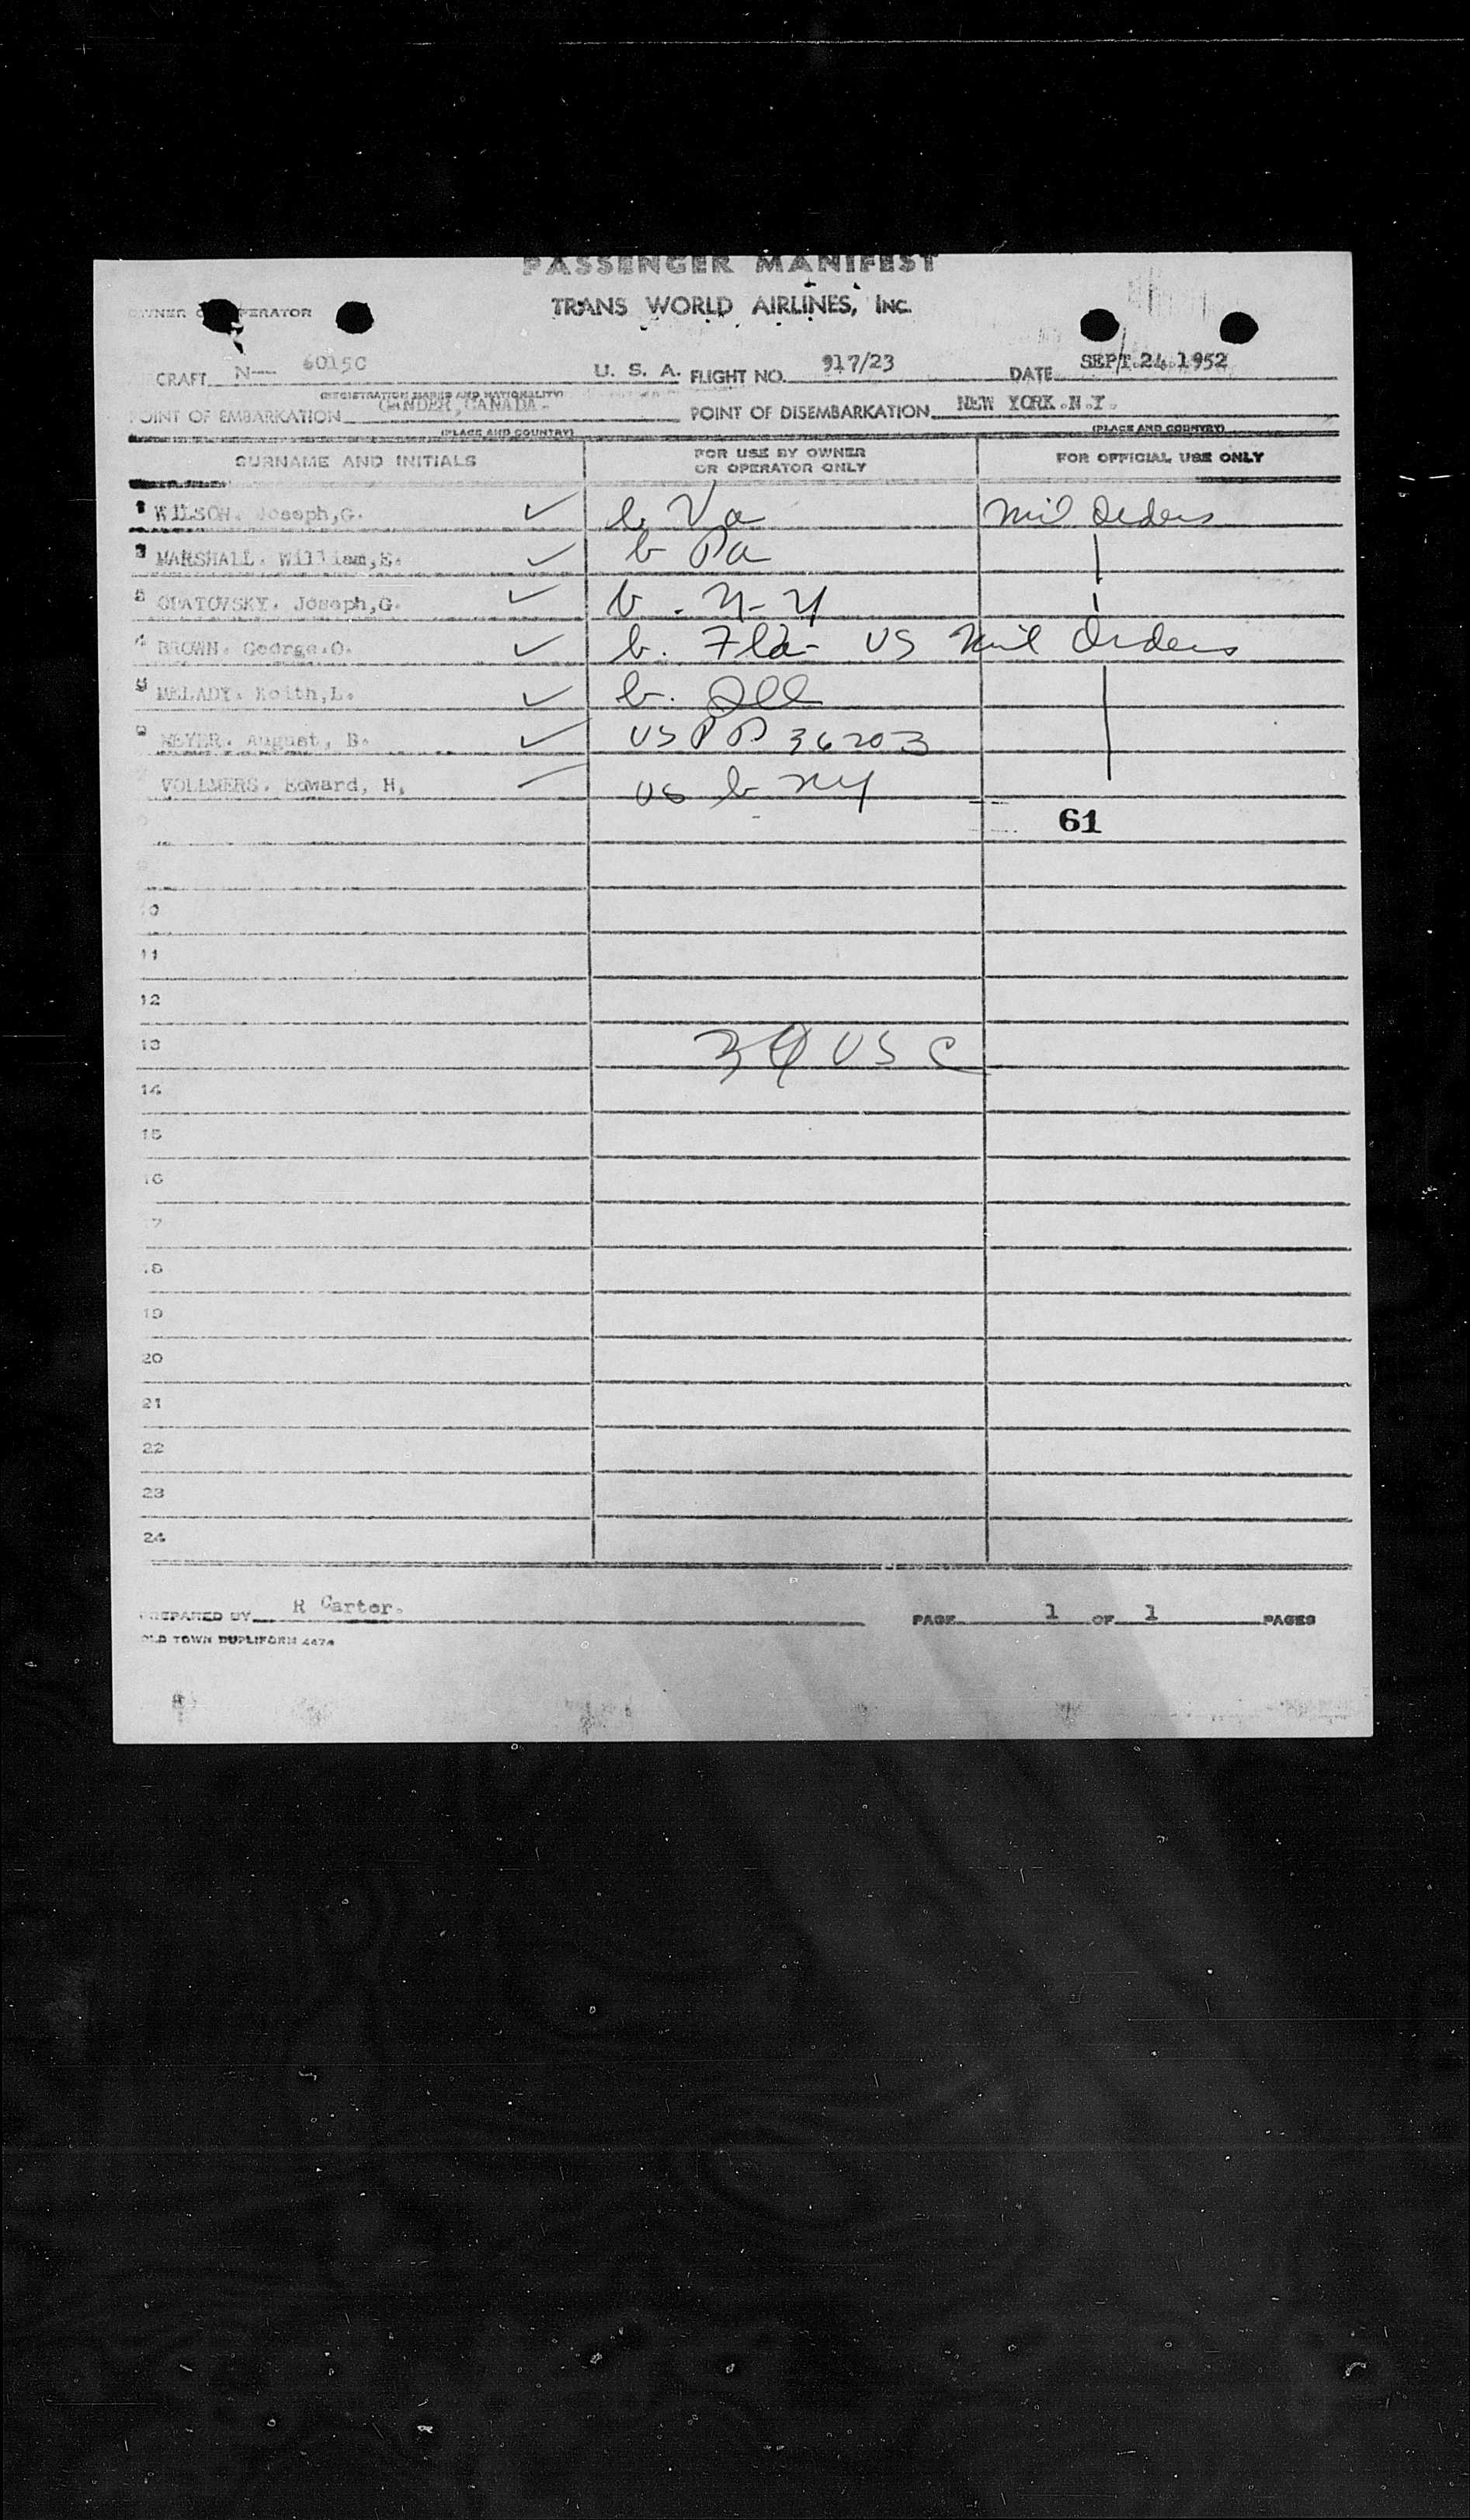 PASSENGER MANIFEST
OWNER OPERATOR TRANS WORLD AIRLINES, INC.
CRAFT N-- 6015C U. S. A. FLIGHT NO. 917/23 DATE SEPT. 24 1952
(REGISTRATION MARKS AND NATIONALITY)
POINT OF EMBARKATION GANDER, CANADA. POINT OF DISEMBARKATION NEW YORK.N.Y.
(PLACE AND COUNTRY) (PLACE AND COUNTRY)
SURNAME AND INITIALS FOR USE BY OWNER OR OPERATOR ONLY FOR OFFICIAL USE ONLY
1 WILSON. Joseph,G. ✓ b Va Mil Orders
MARSHALL. William,E. ✓ b Pa
OPATOVSKY. Joseph,G. ✓ b. N-Y
4 BROWN. George.O. ✓ b. Fla- US Mil Orders
MELADY. Keith,L. ✓ b. Ill
MEYER. August, B. ✓ US PP 36203
VOLLMERS. Edward, H, US b NY
61
10
11
12
13 US C
14
15
16
17
18
19
20
21
22
23
24
PREPARED BY R Carter. PAGE 1 OF 1 PAGES
OLD TOWN DUPLIFORM 4474